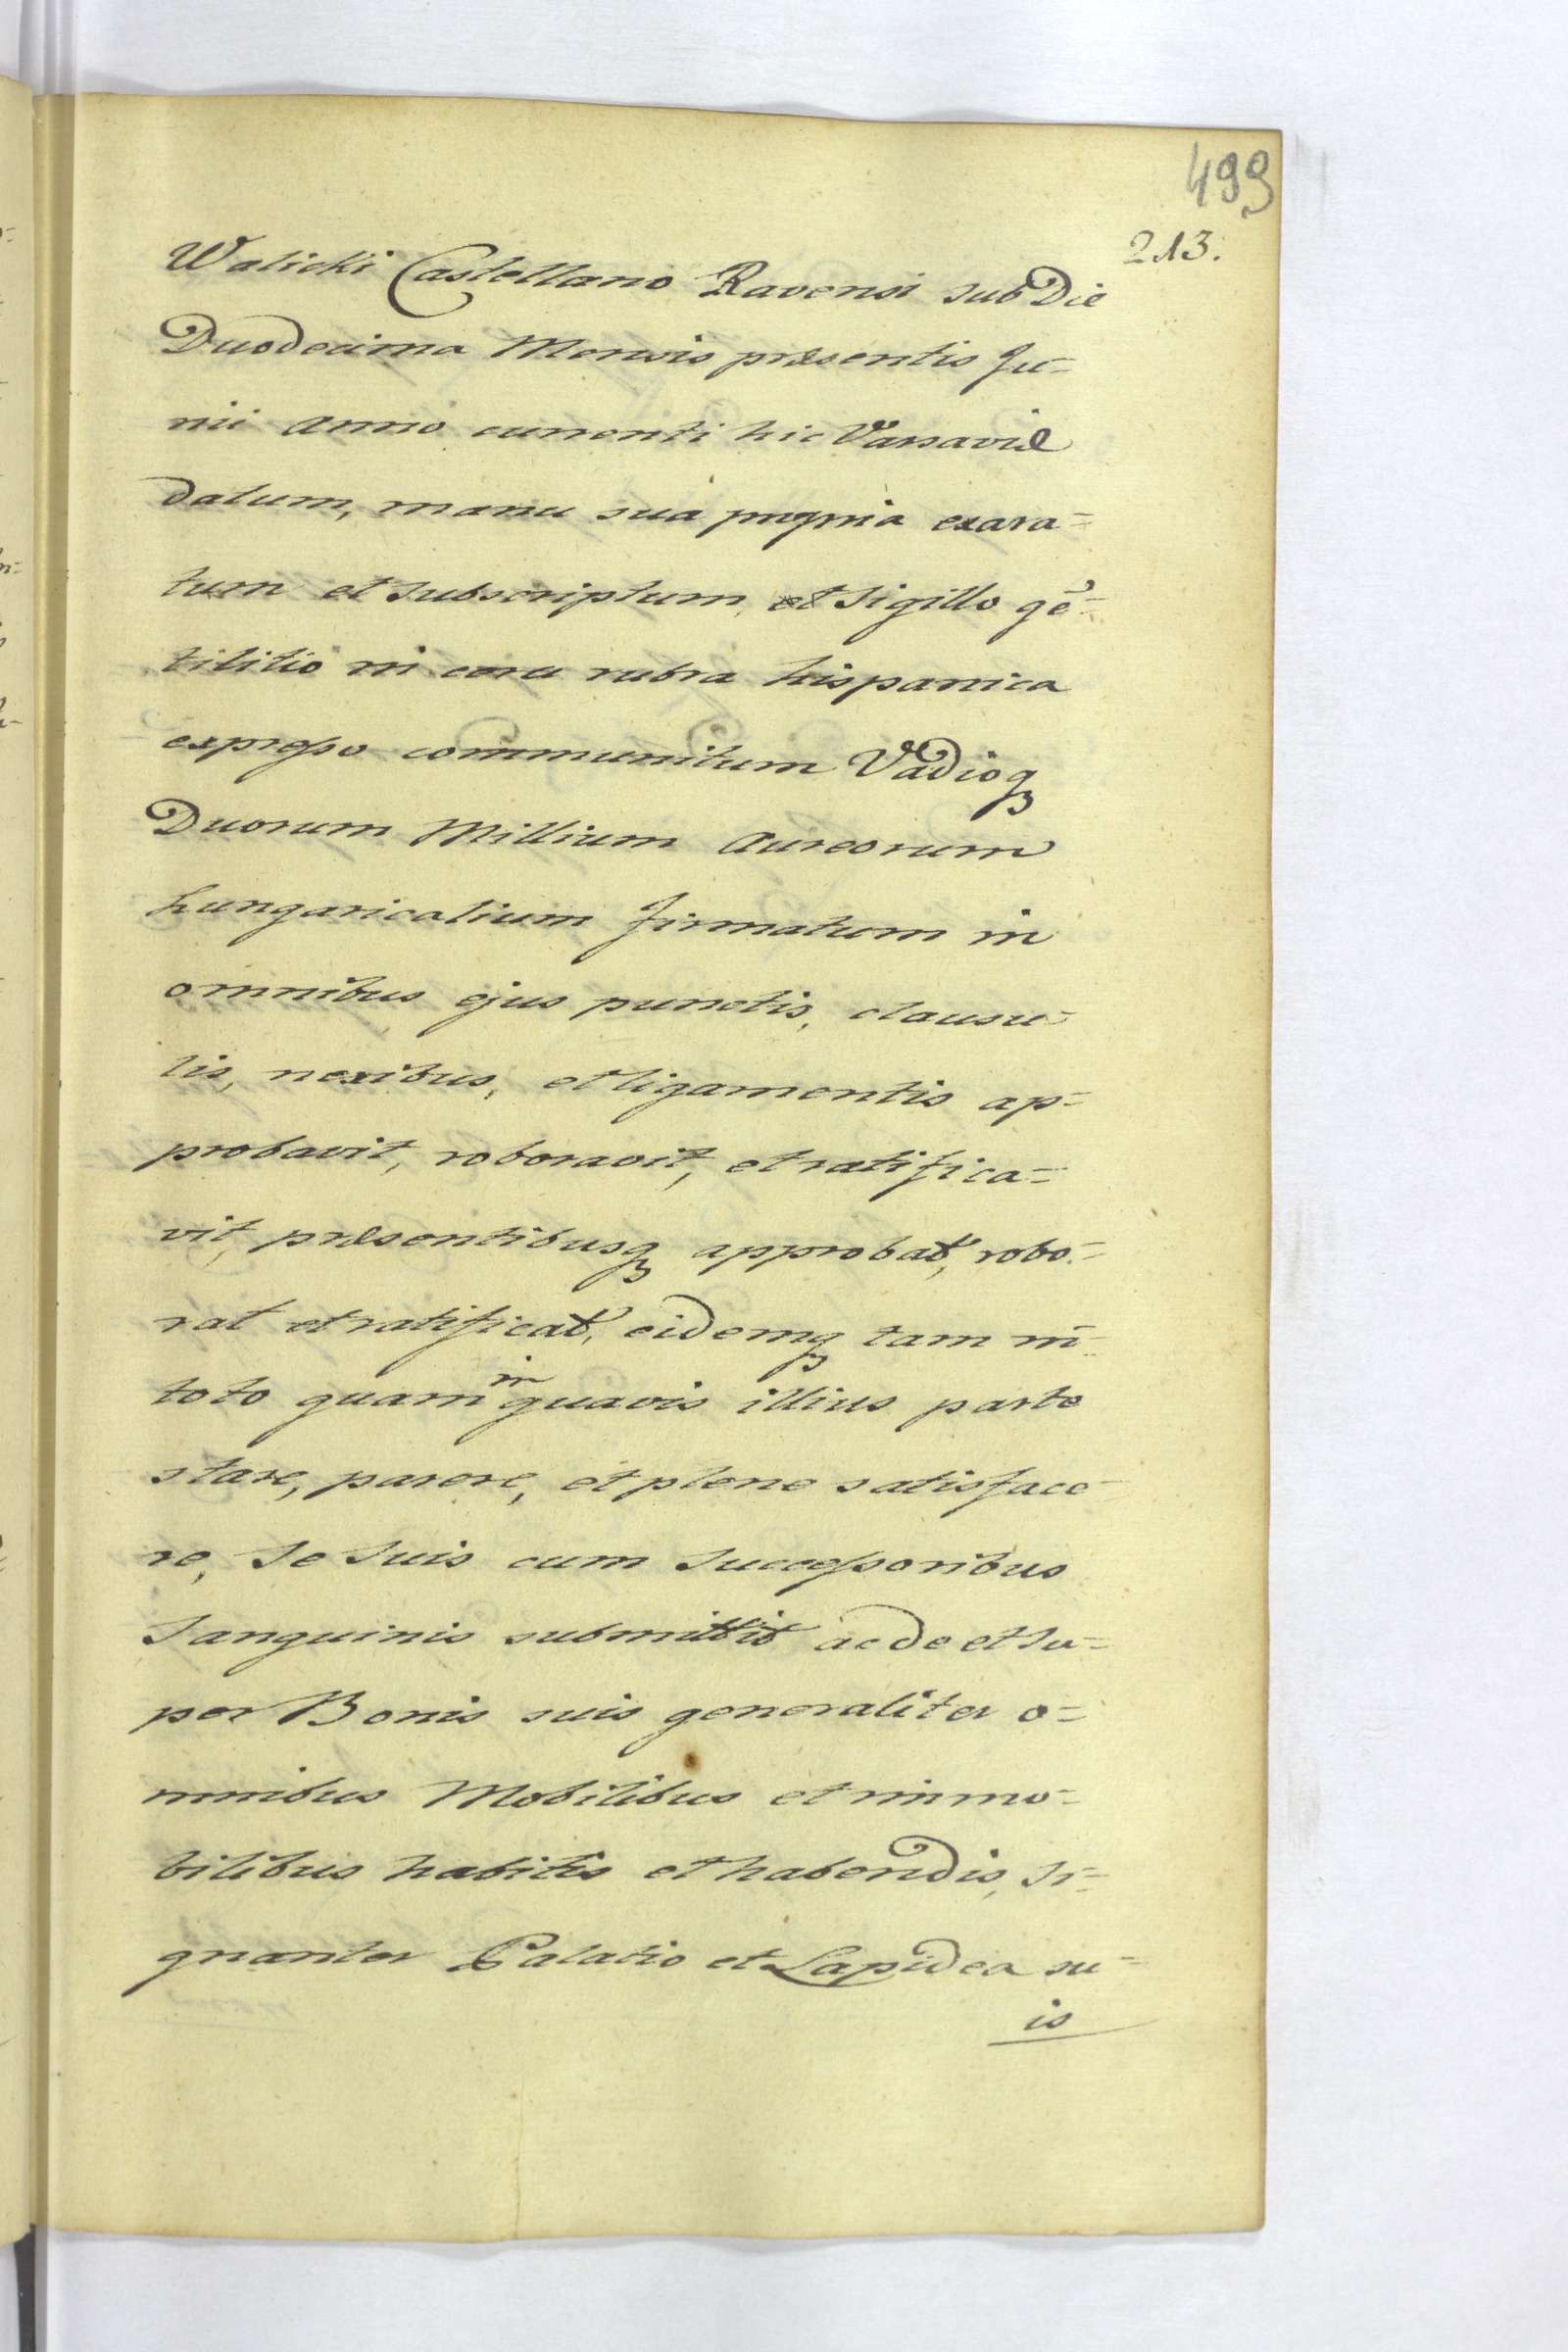 499
213.
Walicki Castellano Ravensi sub Die
Duodecima Mensis præsentis Ju=
nii anno currenti hic Varsaviæ
datum, manu suâ propriâ exara=
tum et subscriptum, et sigillo gē=
tilitio in cera rubra hispanica
expresso communitum Vadioq3
Duorum Millium Aureorum
hungaricalium firmatum in
omnibus ejus punctis, clausu=
lis, nexibus, et ligamentis ap=
probavit, roboravit, et ratifica=
vit, præsentibusq3 approbat, robo=
rat et ratificat, eidemq3 tam in
toto quam in quavis illius parte
stare, parere, et plene satisface=
re, se suis cum successoribus
sanguinis submittit ac de et su=
per Bonis suis generaliter o=
mnibus Mobilibus et immo=
bilibus habitis et habendis, si=
gnanter Palatio et Lapidea su=
is